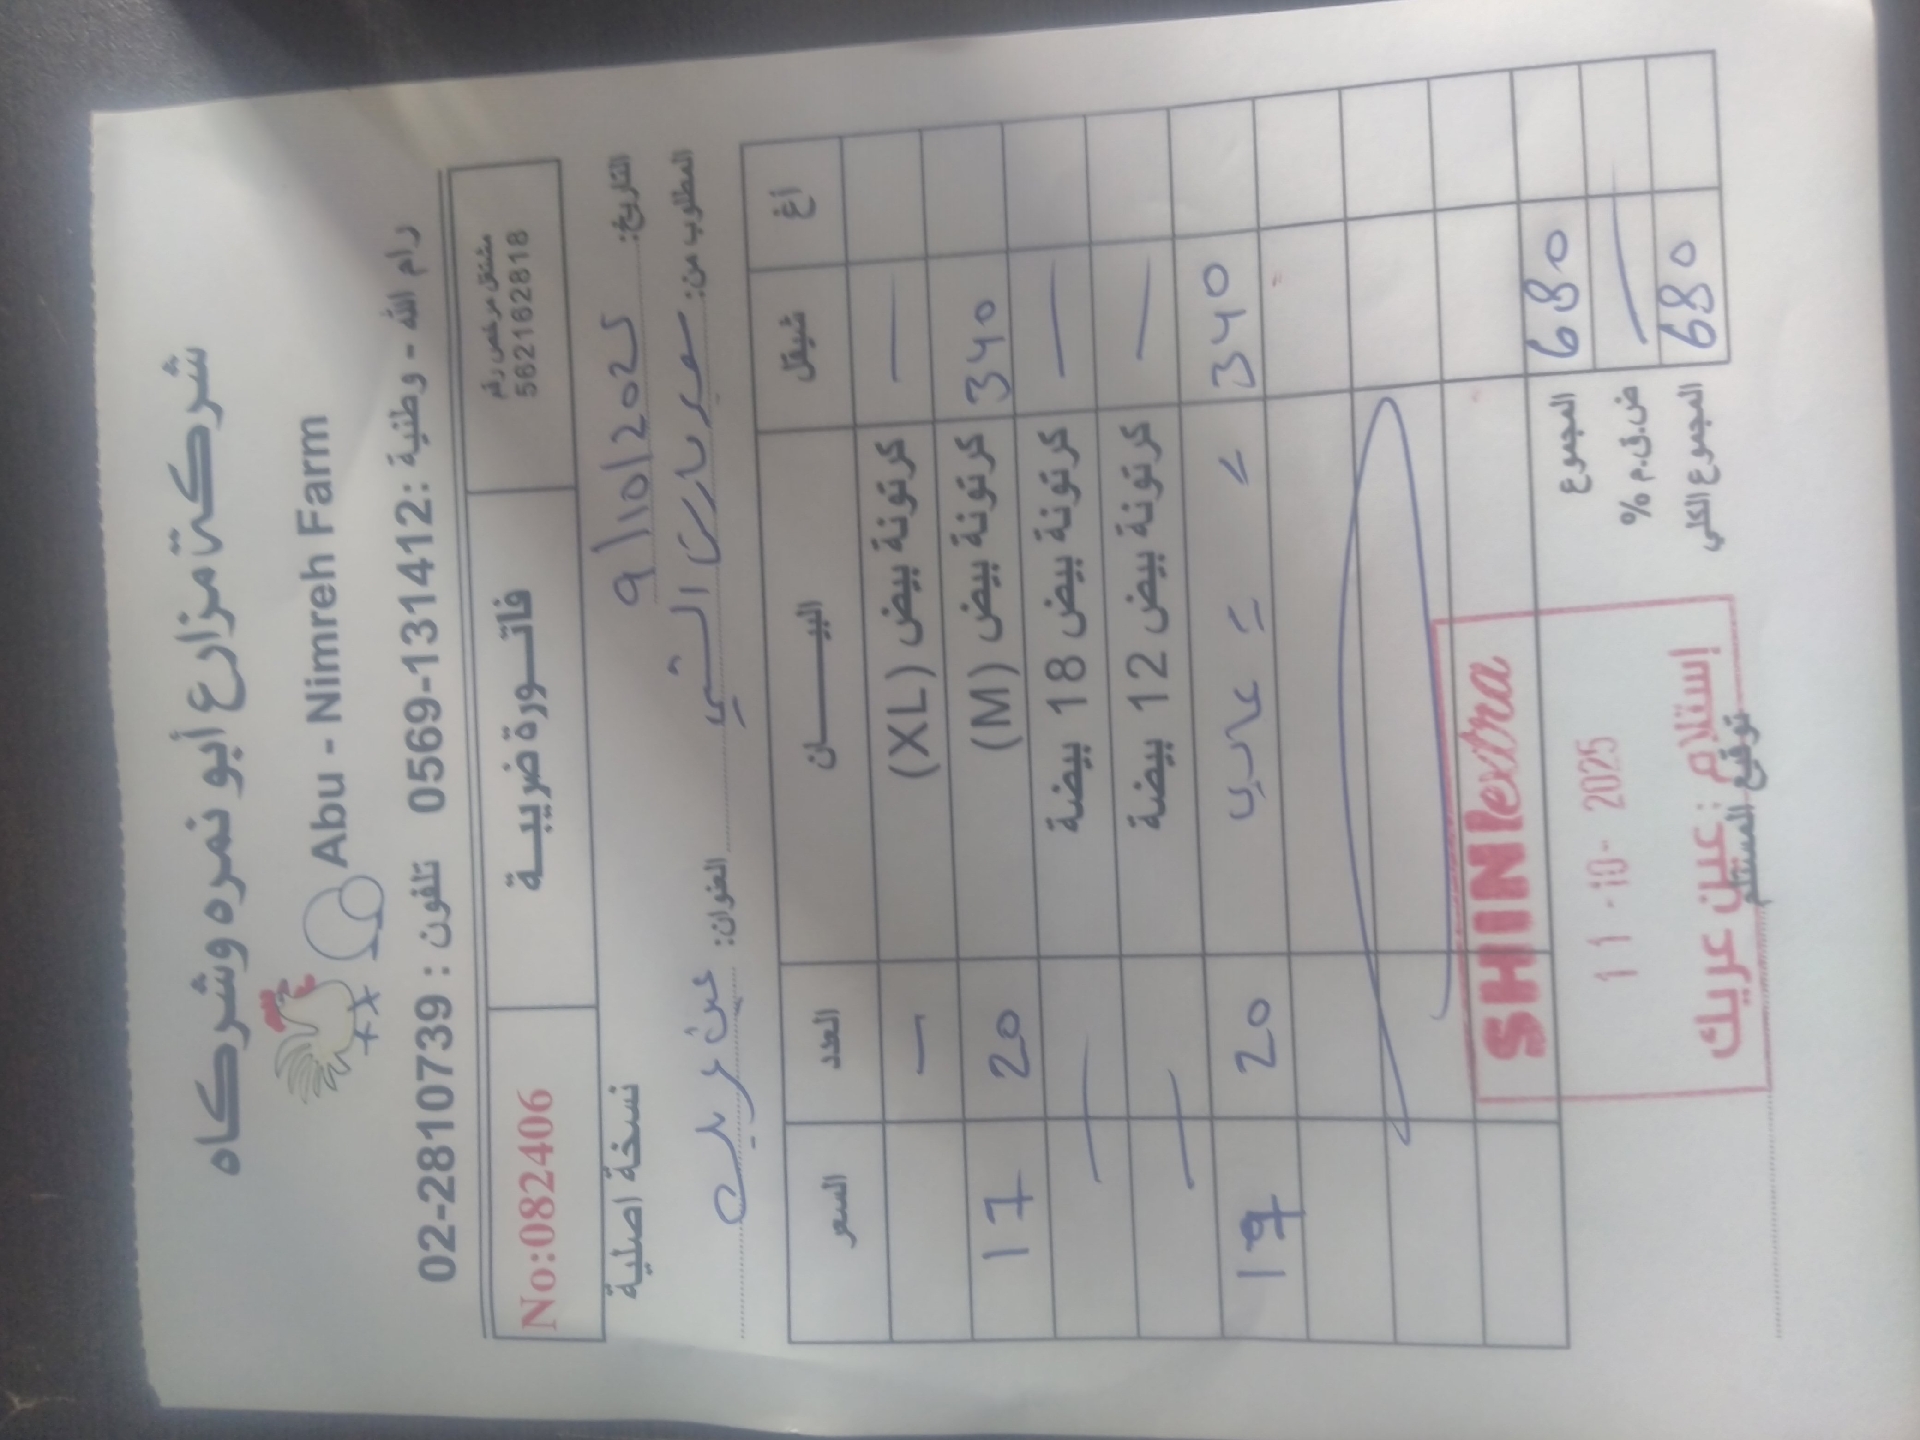 شركة مزارع أبو نمره وشركاه
Abu - Nimreh Farm
رام الله - وطنية : 0569-131412 تلفون : 02-2810739
مشتغل مرخص رقم
562162818
فاتورة ضريبية
No:082406
التاريخ: 9/10/2025 نسخة اصلية
المطلوب من: سوبر ماركت الشني
العنوان: عين عريك
أغ شيقل البيان العدد السعر
— كرتونة بيض (XL) —
340 كرتونة بيض (M) 20 17
— كرتونة بيض 18 بيضة —
— كرتونة بيض 12 بيضة —
340 20 17
680 المجموع
— ض.ق.م %
680 المجموع الكلي
SHINI extra
11-10-2025
إستلام : عين عريك
توقيع المستلم